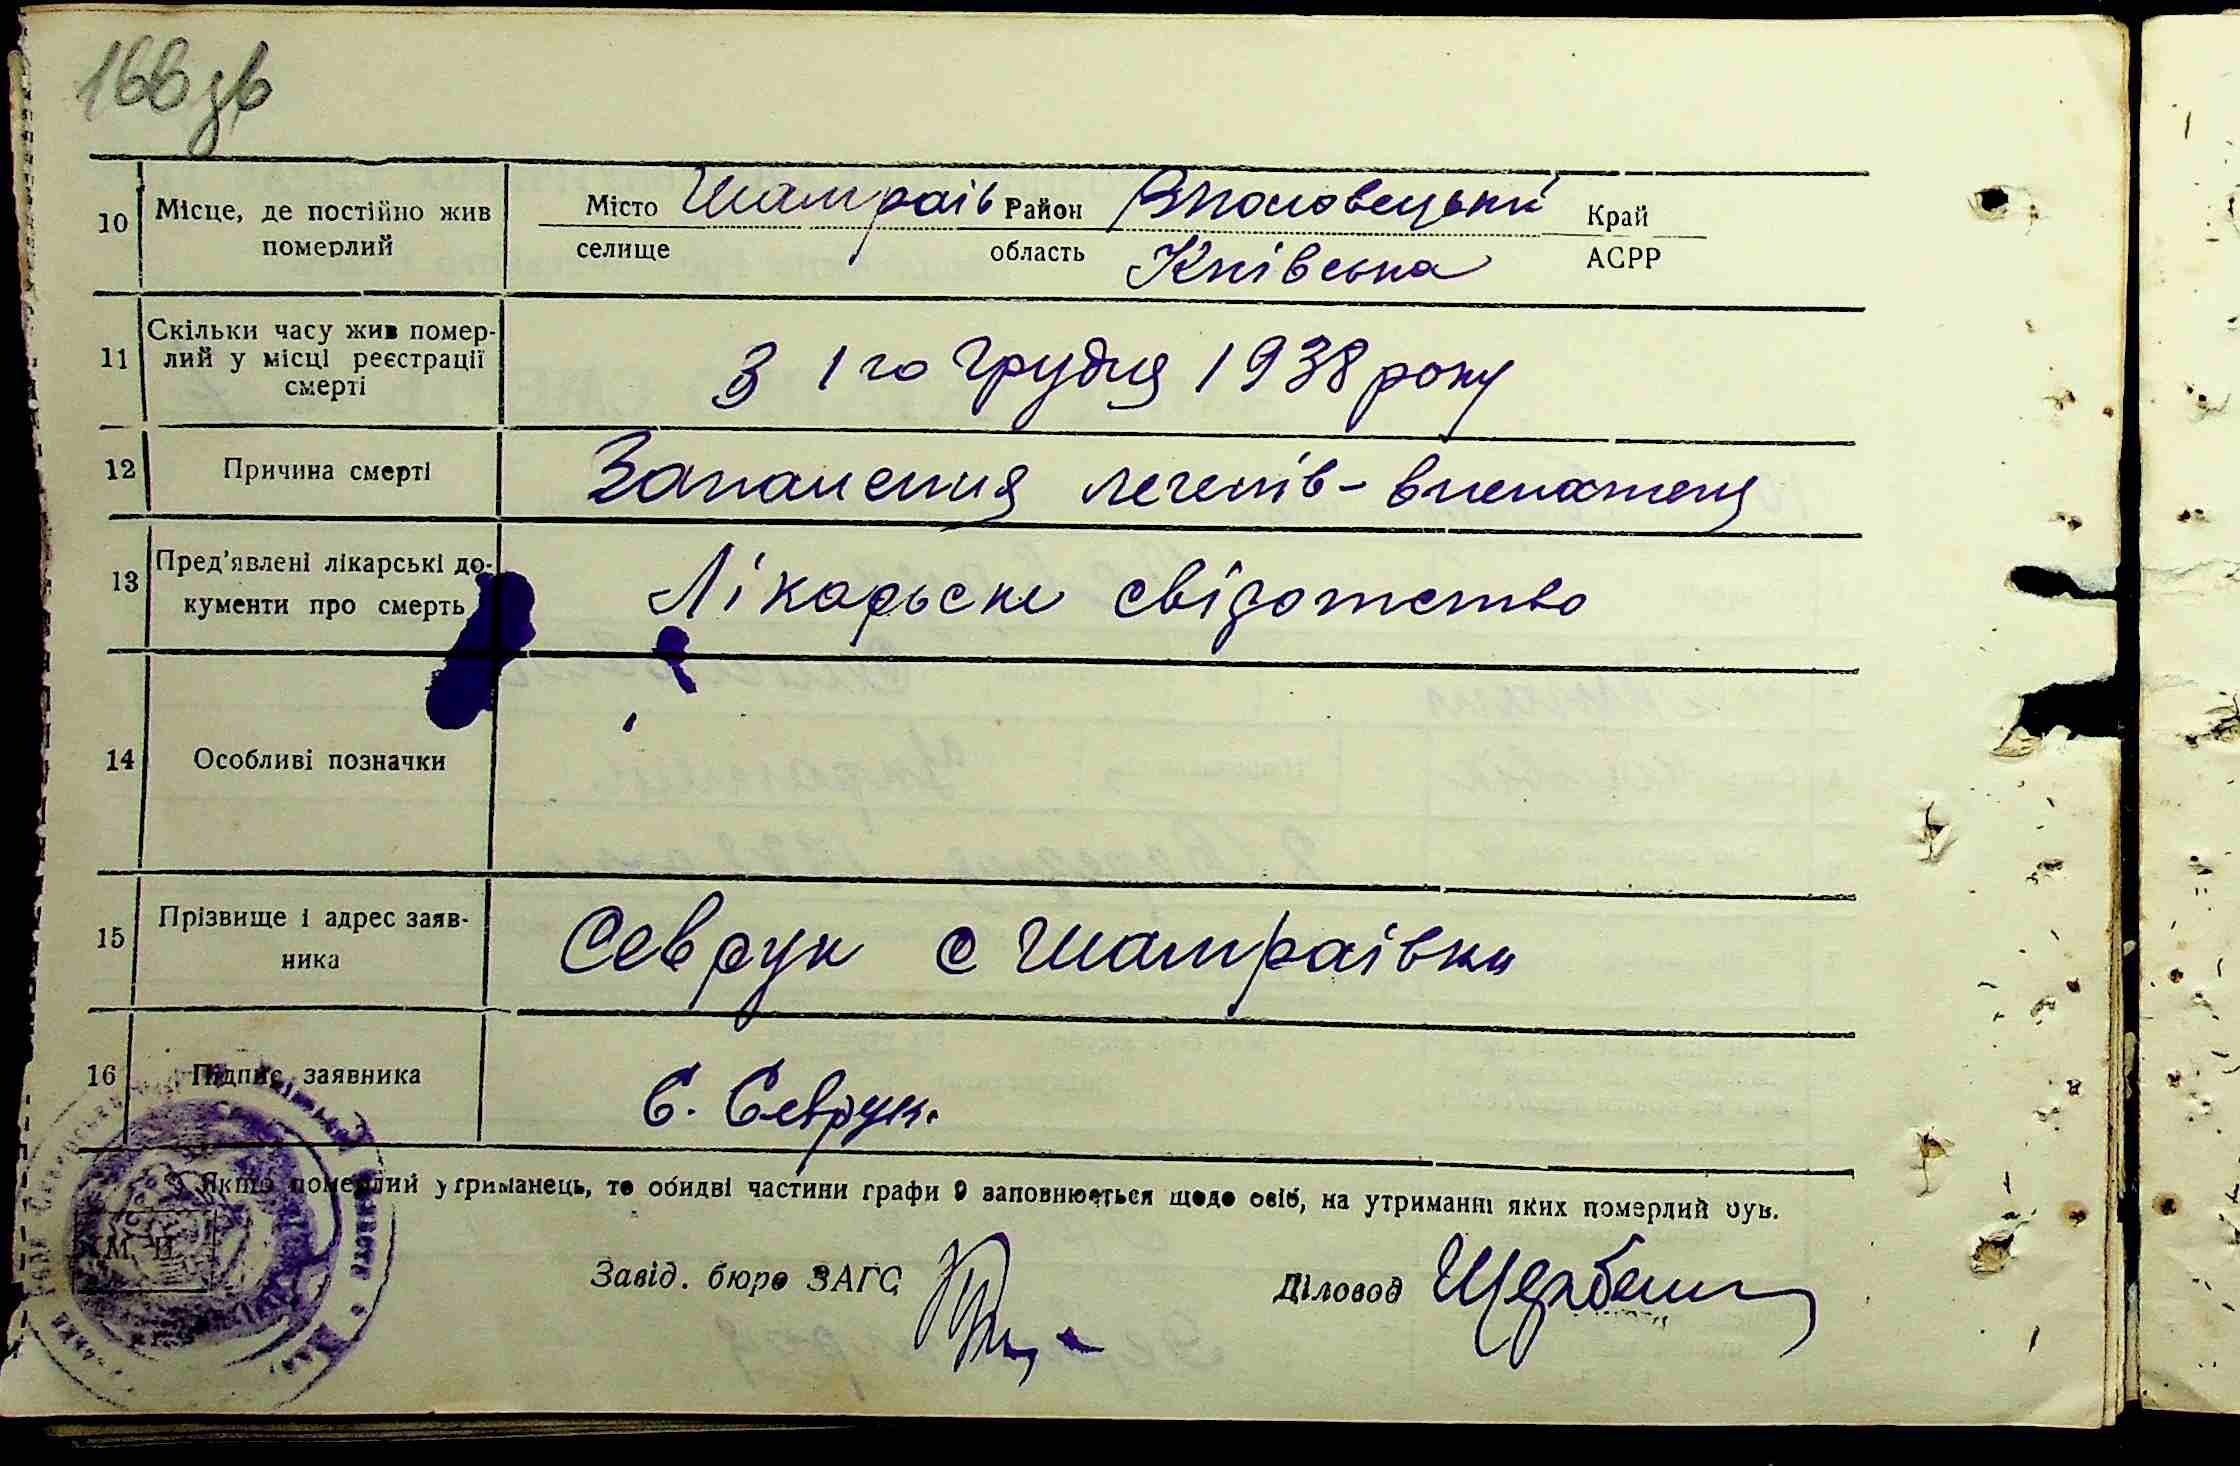 166 зв
10 Місце, де постійно жив померлий
Місто Шамраїв Район Володарський Край
селище область Київська АСРР
11 Скільки часу жив помер-
лий у місці реєстрації
смерті
З 1го Грудня 1938 року
12 Причина смерті Запалення легенів -
13 Пред'явлені лікарські до-
кументи про смерть
Лікарьске свідотство
14 Особливі позначки
15 Прізвище і адрес заяв-
ника
Севрук с Шамраівки
16 Підпис заявника
Є. Севрук.
Якщо померлий утриманець, то обидві частини графи 9 заповнюється щодо осіб, на утриманні яких померлий був.
М. П.
Завід. бюро ЗАГС
Діловод